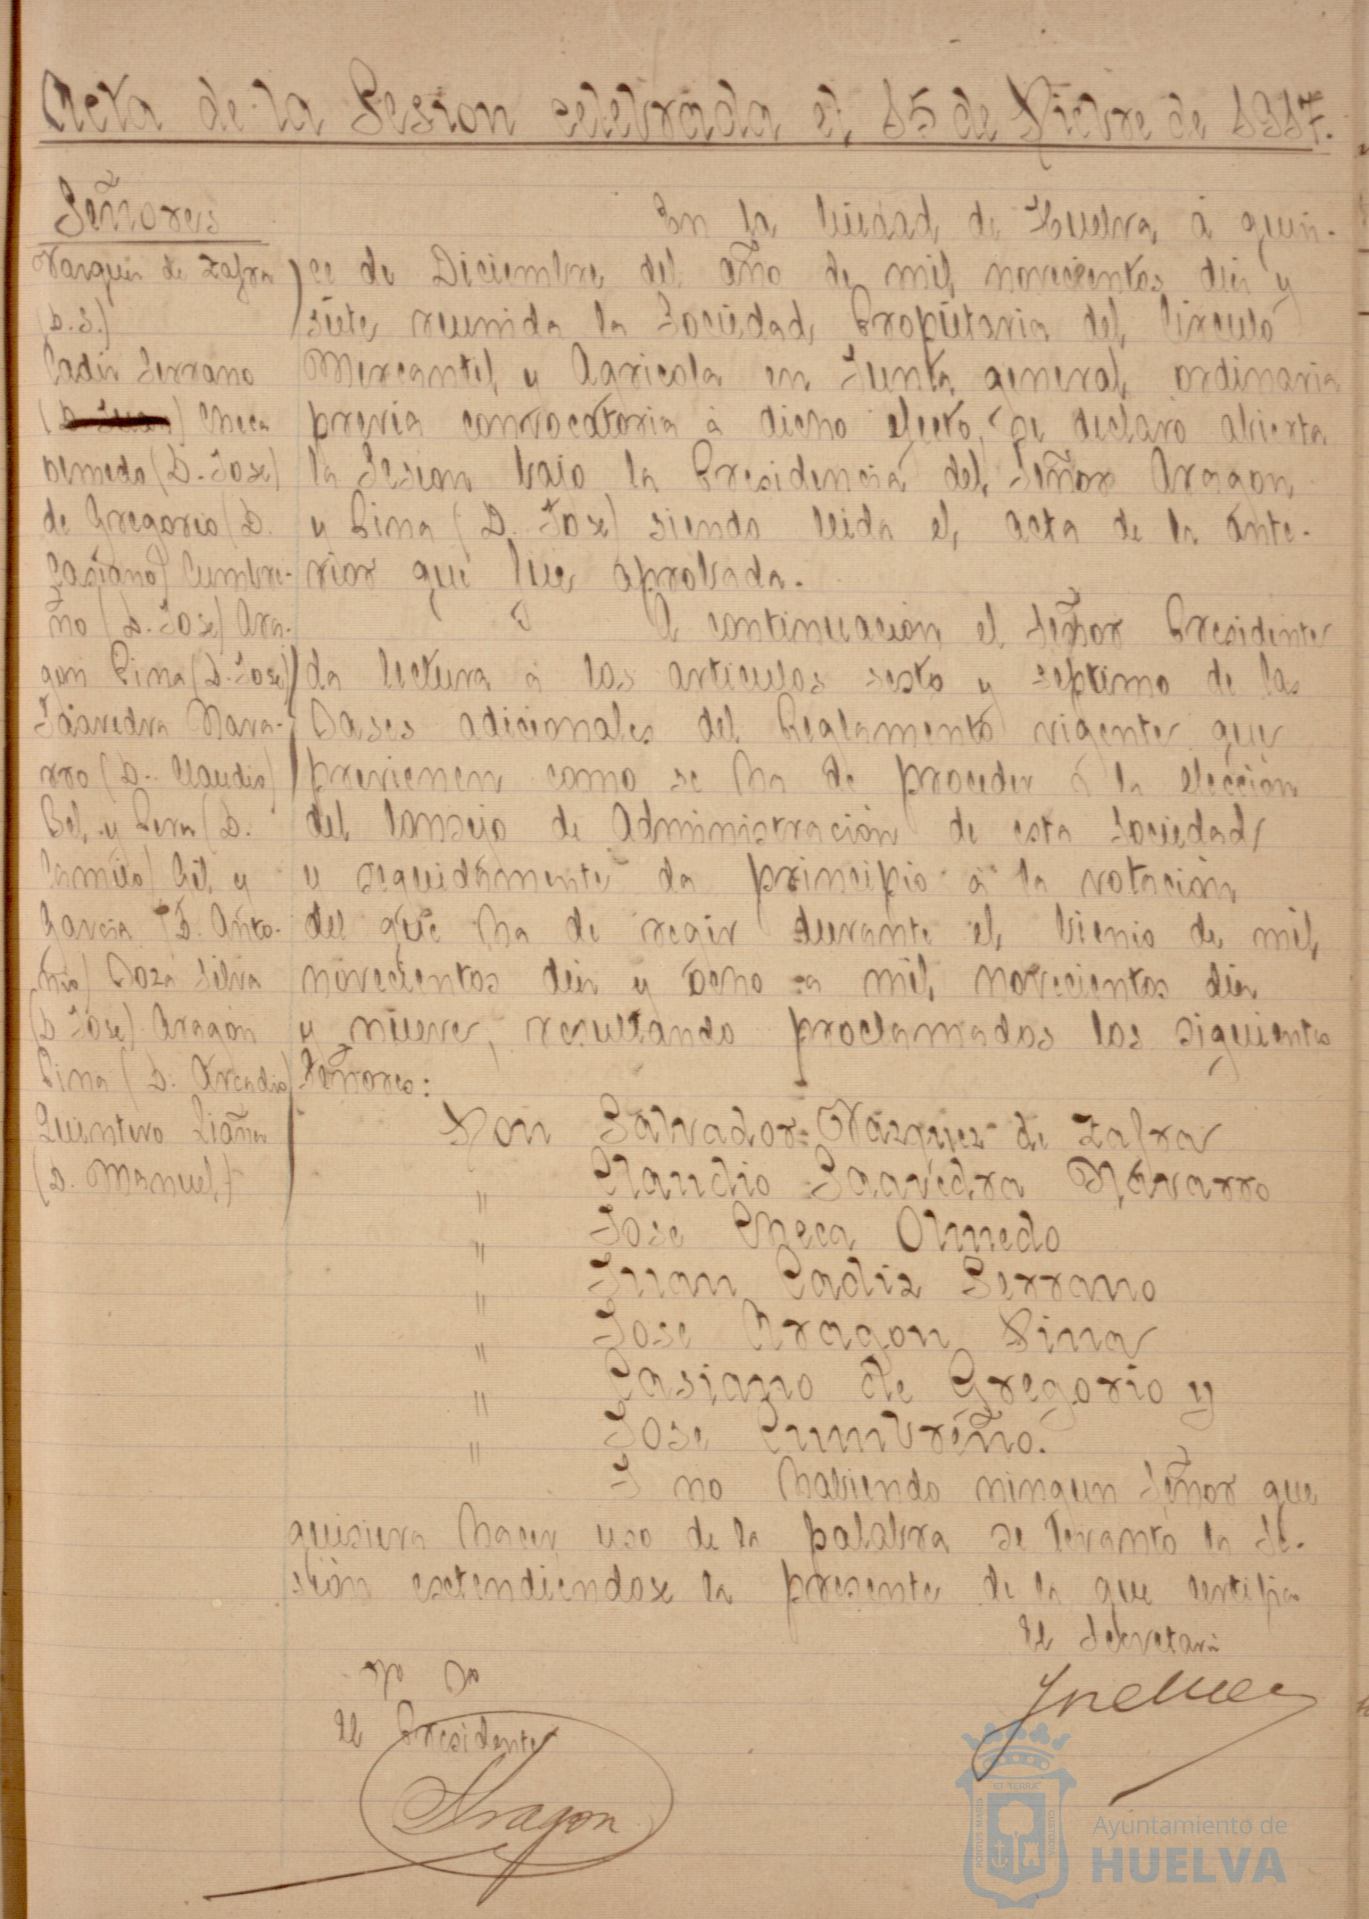 Acta de la Sesion celebrada el 15 de Dicbre de 1917.
Señores
Vazquez de Zafra
(D. S.)
Cadiz Serrano
(D. Juan) Checa
Olmedo (D. Jose)
de Gregorio (D.
Casiano) Cumbre-
ño (D. Jose) Ara-
gon Pina (D. Jose)
Saavedra Nava-
rro (D. Claudio)
Bel y Pera (D.
Camilo) Gil y
Garcia (D. Anto-
nio) Boza Silva
(D Jose) Aragon
Pina (D. Arcadio)
Quintero Liañez
(D. Manuel)
En la Ciudad de Huelva á quin-
ce de Diciembre del año de mil novecientos diez y
siete reunida la Sociedad Propietaria del Circulo
Mercantil y Agricola en Junta general ordinaria
previa convocatoria á dicho efecto, se declaró abierta
la Sesion bajo la Presidencia del Señor Aragon
y Pina (D. Jose) siendo leida el acta de la ante-
rior que fue aprobada.
A continuación el Señor Presidente
da lectura á los articulos sesto y septimo de las
Bases adicionales del Reglamento vigente que
previenen como se ha de proceder á la elección
del Consejo de Administración de esta Sociedad
y seguidamente da principio á la votación
del que ha de regir durante el bienio de mil
novecientos diez y ocho a mil novecientos diez
y nueve, resultando proclamados los siguientes
Señores:
Don Salvador Vazquez de Zafra
" Claudio Saavedra Navarro
" Jose Checa Olmedo
" Juan Cadiz Serrano
" Jose Aragon Pina
" Casiano de Gregorio y
" Jose Cumbreño.
I no habiendo ningun Señor que
quisiera hacer uso de la palabra se levantó la Se-
sión esctendiéndose la presente de la que certifico
El Secretario
Vº Bº
El Presidente
Aragon
ET TERRÆ
PORTUS MARIS
CUSTODIA
Ayuntamiento de
HUELVA